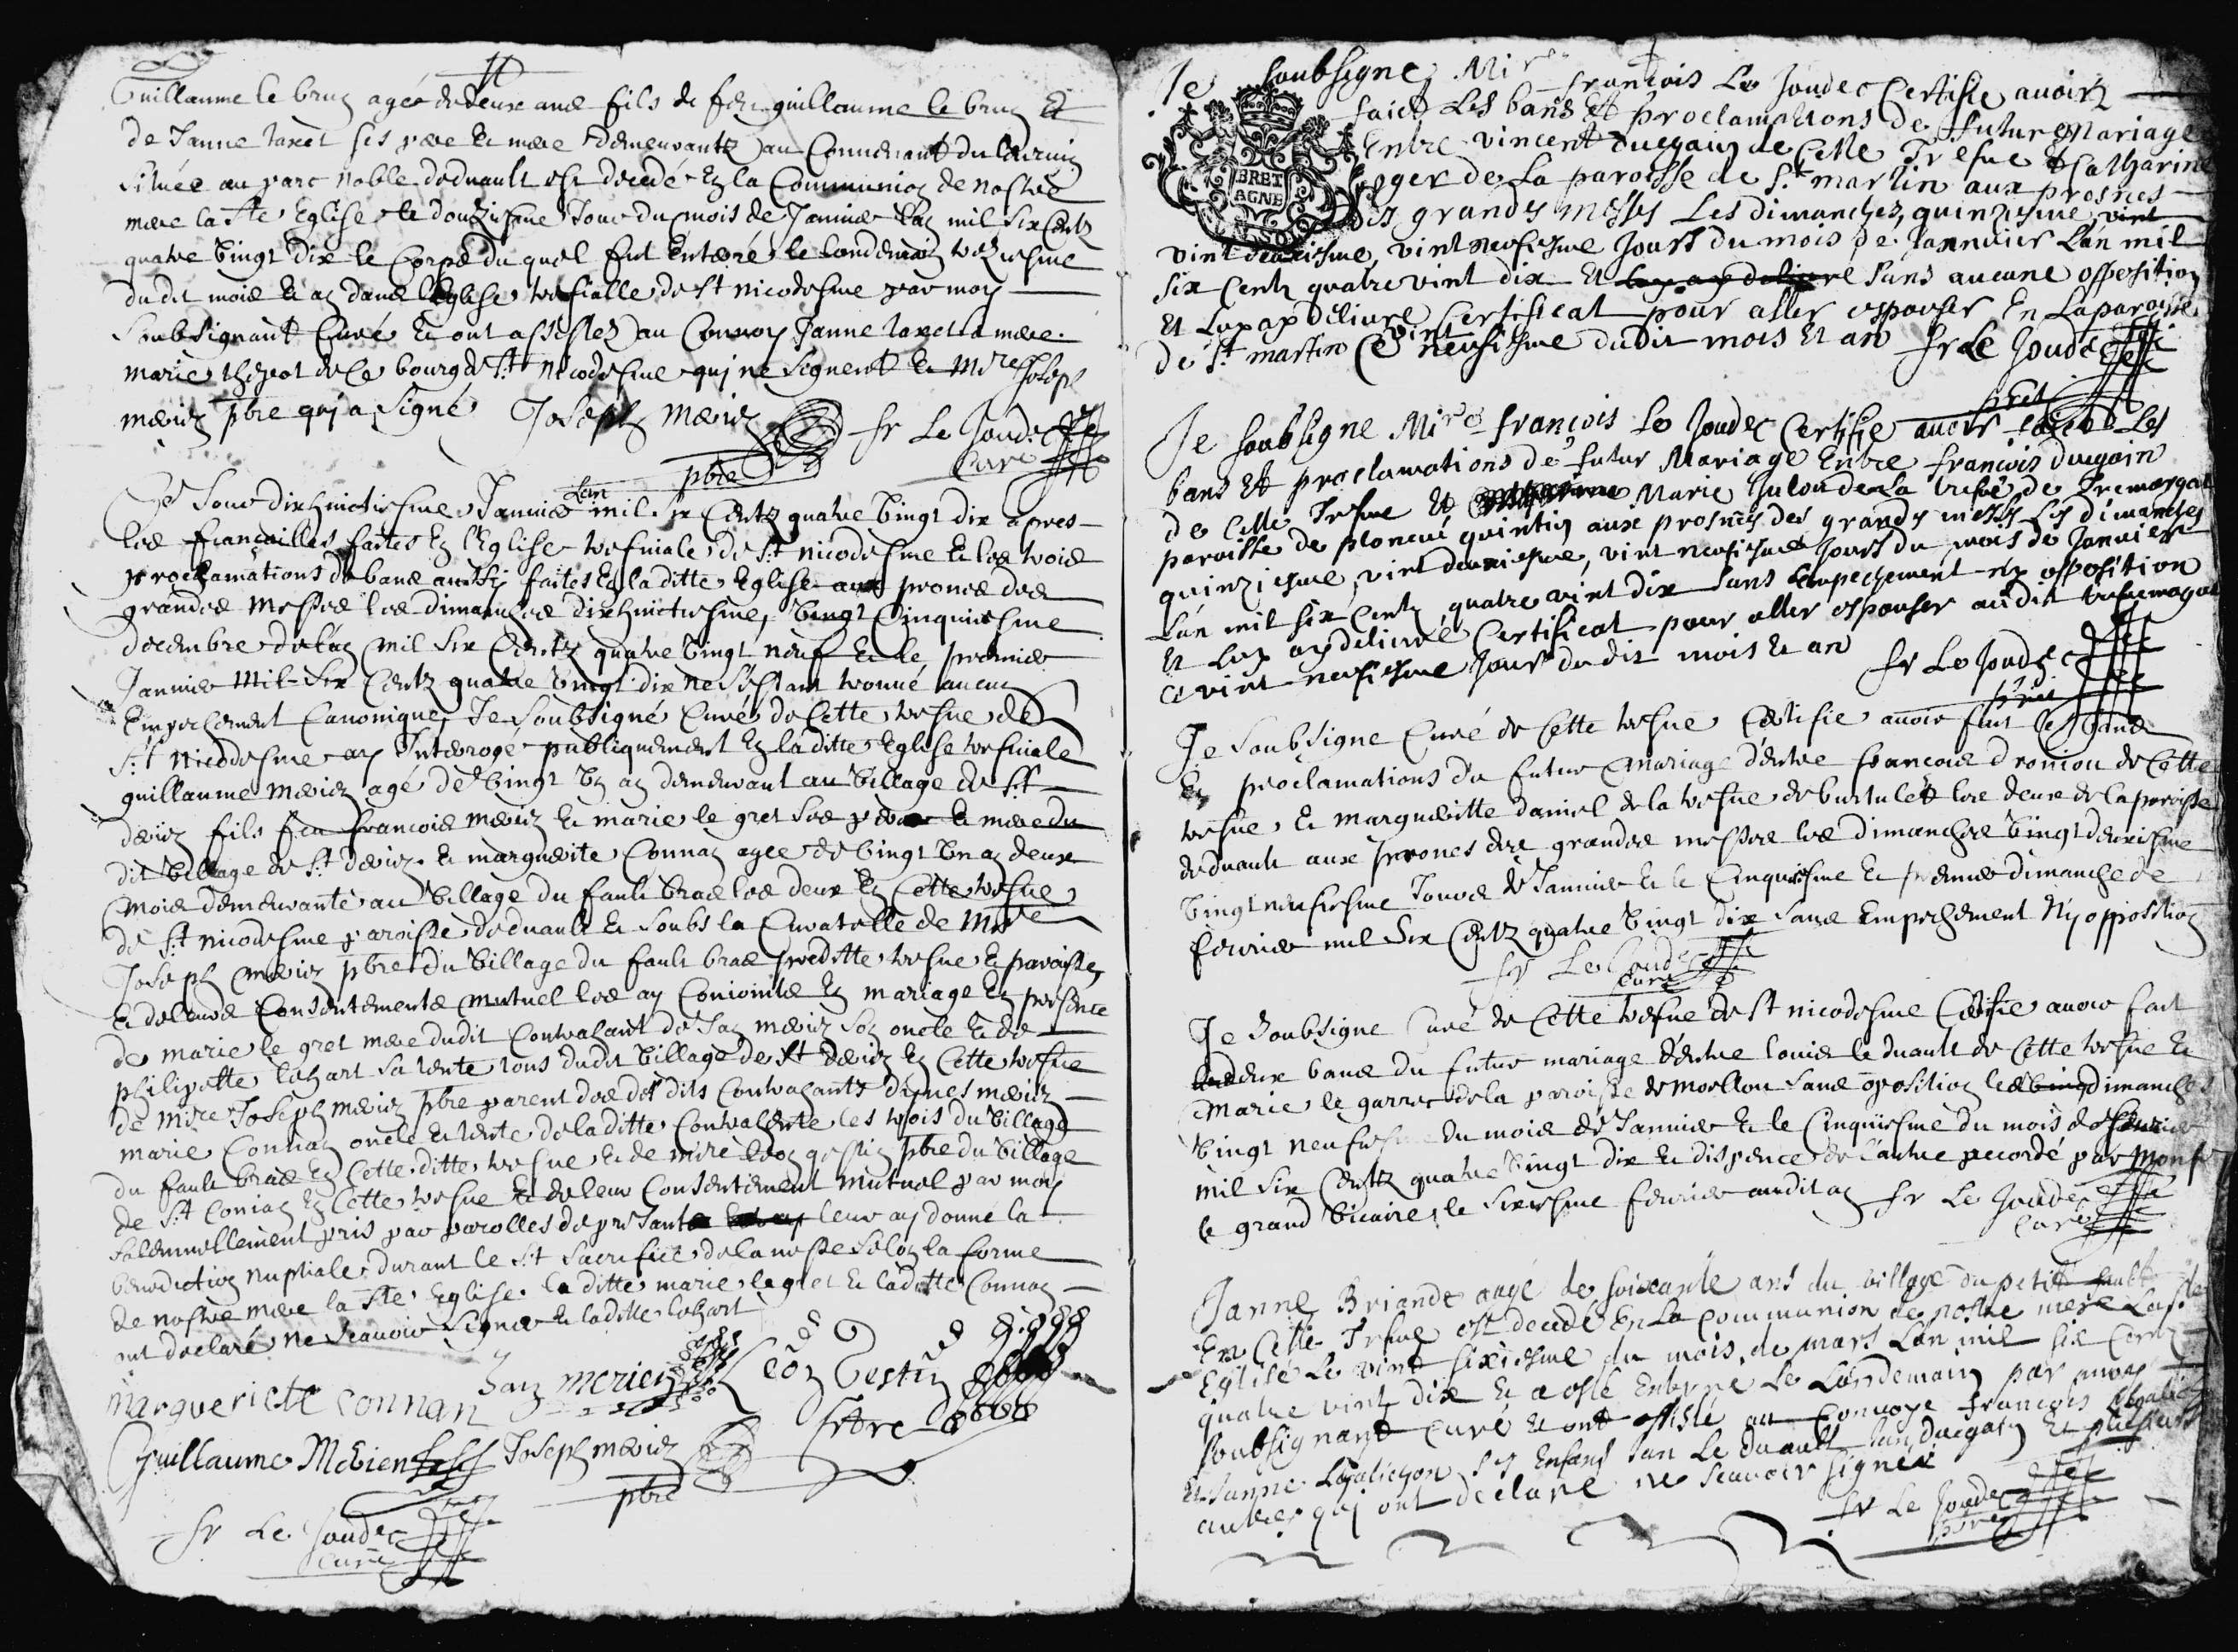 Guillaume le brun agée de deux ans fils de feu guillaume le brun Et
de Janne taxet ses pere et mere Demeurantz au Conuenant du
située au parc noble de duault est decedé En la Communion de nostre
mere la Ste Eglise le douziesme Jour du mois de Januier Lan mil six Centz
quatre vingt dix le Corps du quel fut Enterré le landemain treziesme
du dit mois et an dans l'Eglise trefialle de St nicodesme par moy
Soubsignant Curé et ont assistez au Conuoy Janne taxet sa mere
marie de Ce bourg de St nicodesme quj ne signent et Mire Joseph
merien pbre quj a signé Joseph merien fr Le Joudec
pbre Curé
Ce Jour dixhuictiesme Januier Lan mil six Centz quatre vingt dix apres
les fiançailles faites En l'Eglise trefuiale de St nicodesme et les trois
proclamations de bans aussy faites En la ditte Eglise aux prones des
grandes Messes les dimanches dixhuictiesme, vingt Cinquiesme
decembre de l'an mil six Centz quatre vingt neuf et le premier
Januier Mil six Centz quatre vingt dix ne s'estant trouué aucun
Empechement Canonique, Je Soubsigné Curé de Cette trefue de
St nicodesme ay Interrogé publiquement En la ditte Eglise trefuiale
guillaume merien agé de vingt Un an demeurant au village de St
derien fils feu francois merien et marie le gret ses pere et mere du
dit village de St derien et marguerite Connan agee de vingt Un an deux
mois demeurante au village du fault bras les deux En Cette trefue
de St nicodesme paroisse de duault et soubs la Curatelle de Mre
Joseph merien pbre du village du fault bras preditte trefue et paroisse,
et de leurs Consentements mutuel les ay Conjoints En mariage En presence
de marie le gret mere dudit Contraçant de Jan merien son oncle et de
philipotte lohart sa tente tous dudit village de St derien En Cette trefue
de Mire Joseph merien pbre parent des des dits Contraçants merien
marie Connan oncle et tente de la ditte Contraçente les trois du village
du fault bras En Cette ditte trefue et de mire pbre du village
de St Conian En Cette trefue et de leur Consentement mutuel par moy
solemnellement pris par parolles de presant leur ay donné la
benediction nuptiale durant le St Sacrifice de la messe selon la forme
de nostre mere la Ste Eglise. la ditte marie le gret et laditte Connan
ont declaré ne scauoir signer et laditte lohart
marguericte connan Jan merien
pbtre
Guillaume Merien Joseph merien
pbre
fr Le Joudec
Curé
Je soubsigné Mire francois Le Joudec Certifie auoir
faict Les bans Et proclamations de futur Mariage
Entre vincent duegain de Cette Trefue et Catharine
oger de La paroisse de St martin aux prosnes
des grandes messes Les dimanches, quinziesme vint
vint deuxiesme, vint neufiesme Jours du mois de Januier L'an mil
six Centz quatre vint dix Et sans aucune opposition
Et Luy ay déliuré Certificat pour aller espouser En La paroisse
de St martin Ce vint neufiesme dudit mois Et an fr Le Joudec
BRET
AGNE
SO
prêt
Je soubsigné Mire françois Le Joudec Certifie auoir faict Les
bans Et proclamations de futur Mariage Entre francois duegain
de Cette Trefue Et Marie de La trefue de Tremargat
paroisse de ploneué quintin aux prosnes des grands messes Les dimanches
quinziesme, vint deuxiesme, vint neufiesme Jours du mois de Januier
L'an mil six Centz quatre vint dix sans Empechement ny opposition
Et Luy ay deliuré Certificat pour aller espouser audit tremargat
Ce vint neufiesme Jour du dit mois et an fr Le Joudec
Je soubsigne Curé de Cette trefue Certifie auoir fait les bans
Et proclamations du futur Mariage d'entre francois droniou de Cette
trefue et marguerite daniel de la trefue de burtulet les deux de la paroisse
de duault aux prones des grandes messes les dimanches vingt deuxiesme
vingt neufiesme Jours de Januier et le Cinquiesme et premier dimanche de
feurier mil six Centz quatre vingt dix sans Empechement Ny oppossition
fr Le Joudec
Curé
Je Soubsigne Curé de Cette trefue de St nicodesme Certifie auoir fait
les deux bans du futur mariage d'entre louis le duault de Cette trefue et
Marie le garrec de la paroisse de moellou sans oposition les dimanches
vingt neufiesme du mois de Januier et le Cinquiesme du mois de feurier
mil six Centz quatre vingt dix et dispence de l'autre accordé par Monsr
le grand vicaire, le sixiesme feurier audit an fr Le Joudec
Curé
Janne Briande aagé de soixante ans du village du petit fault
En Cette Trefue est decedé En La Communion de nostre mere La Ste
Eglise Le vint sixiesme du mois de mars L'an mil six Centz
quatre vint dix Et a esté Enterré Le Landemain par
soubsignant Curé Et ont assisté au Conuoye francois
Et Janne ses Enfans Jan Le duault Jan duegain Et plusieurs
autres quj ont declaré ne scauoir signer
fr Le Joudec